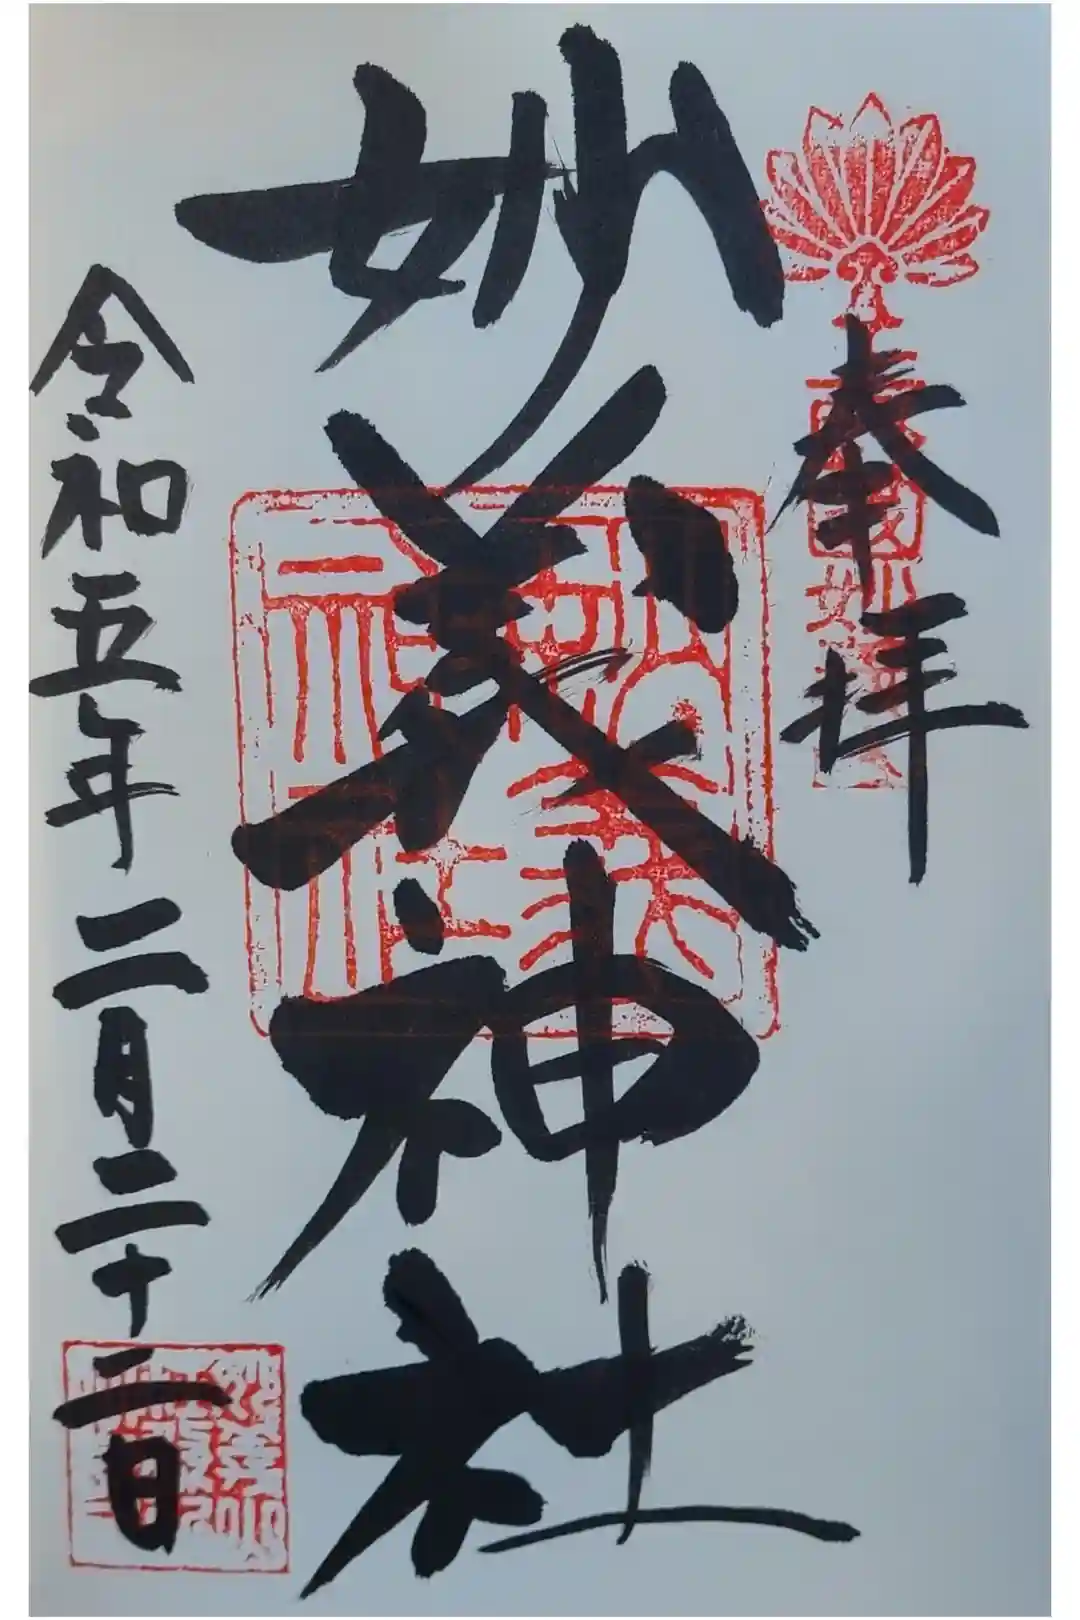 奉拝
妙義神社
令和五年二月二十二日
妙義神社